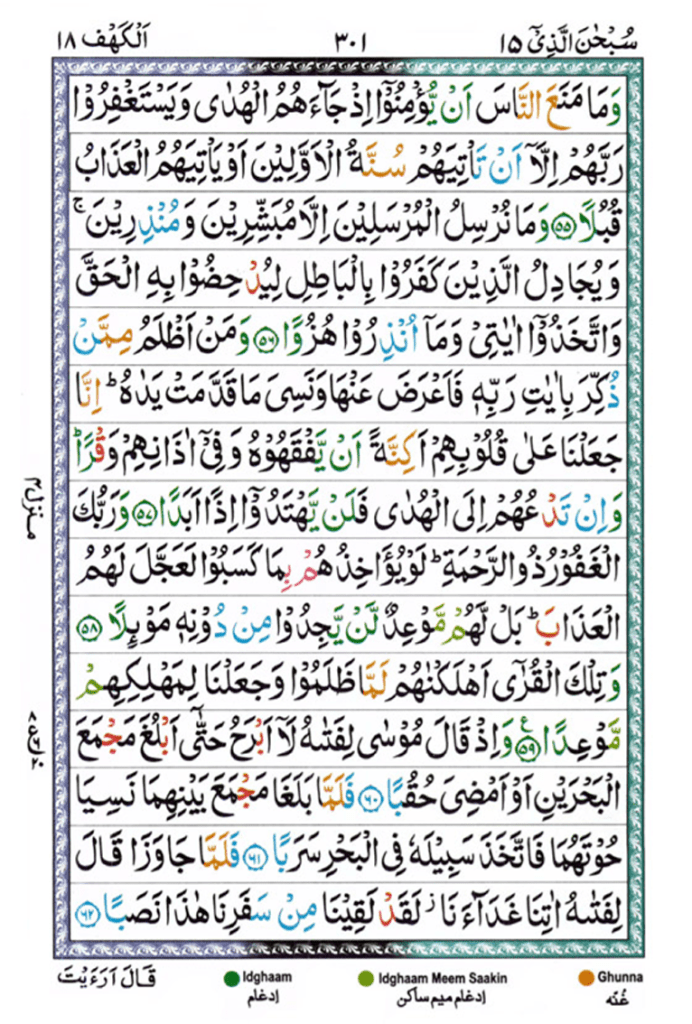 سُبْحٰنَ الَّذِیْۤ ١٥ ٣٠١ اَلْكَهْف ١٨
وَمَا مَنَعَ النَّاسَ اَنْ یُّؤْمِنُوْۤا اِذْ جَآءَهُمُ الْهُدٰی وَیَسْتَغْفِرُوْا
رَبَّهُمْ اِلَّاۤ اَنْ تَاْتِیَهُمْ سُنَّةُ الْاَوَّلِیْنَ اَوْ یَاْتِیَهُمُ الْعَذَابُ
قُبُلًا ﴿٥٥﴾ وَمَا نُرْسِلُ الْمُرْسَلِیْنَ اِلَّا مُبَشِّرِیْنَ وَمُنْذِرِیْنَ ۚ
وَیُجَادِلُ الَّذِیْنَ كَفَرُوْا بِالْبَاطِلِ لِیُدْحِضُوْا بِهِ الْحَقَّ
وَاتَّخَذُوْۤا اٰیٰتِیْ وَمَاۤ اُنْذِرُوْا هُزُوًا ﴿٥٦﴾ وَمَنْ اَظْلَمُ مِمَّنْ
ذُكِّرَ بِاٰیٰتِ رَبِّهٖ فَاَعْرَضَ عَنْهَا وَنَسِیَ مَا قَدَّمَتْ یَدٰهُ ؕ اِنَّا
جَعَلْنَا عَلٰی قُلُوْبِهِمْ اَكِنَّةً اَنْ یَّفْقَهُوْهُ وَفِیْۤ اٰذَانِهِمْ وَقْرًا ؕ
وَاِنْ تَدْعُهُمْ اِلَی الْهُدٰی فَلَنْ یَّهْتَدُوْۤا اِذًا اَبَدًا ﴿٥٧﴾ وَرَبُّكَ
الْغَفُوْرُ ذُو الرَّحْمَةِ ؕ لَوْ یُؤَاخِذُهُمْ بِمَا كَسَبُوْا لَعَجَّلَ لَهُمُ
الْعَذَابَ ؕ بَلْ لَّهُمْ مَّوْعِدٌ لَّنْ یَّجِدُوْا مِنْ دُوْنِهٖ مَوْىِٕلًا ﴿٥٨﴾
وَتِلْكَ الْقُرٰۤی اَهْلَكْنٰهُمْ لَمَّا ظَلَمُوْا وَجَعَلْنَا لِمَهْلِكِهِمْ
مَّوْعِدًا ﴿٥٩﴾ وَاِذْ قَالَ مُوْسٰی لِفَتٰىهُ لَاۤ اَبْرَحُ حَتّٰۤی اَبْلُغَ مَجْمَعَ
الْبَحْرَیْنِ اَوْ اَمْضِیَ حُقُبًا ﴿٦٠﴾ فَلَمَّا بَلَغَا مَجْمَعَ بَیْنِهِمَا نَسِیَا
حُوْتَهُمَا فَاتَّخَذَ سَبِیْلَهٗ فِی الْبَحْرِ سَرَبًا ﴿٦١﴾ فَلَمَّا جَاوَزَا قَالَ
لِفَتٰىهُ اٰتِنَا غَدَآءَنَا ز لَقَدْ لَقِیْنَا مِنْ سَفَرِنَا هٰذَا نَصَبًا ﴿٦٢﴾
منزل ٤
قَالَ اَرَءَیْتَ
Idghaam
ادغام
Idghaam Meem Saakin
ادغام میم ساکن
Ghunna
غُنّه